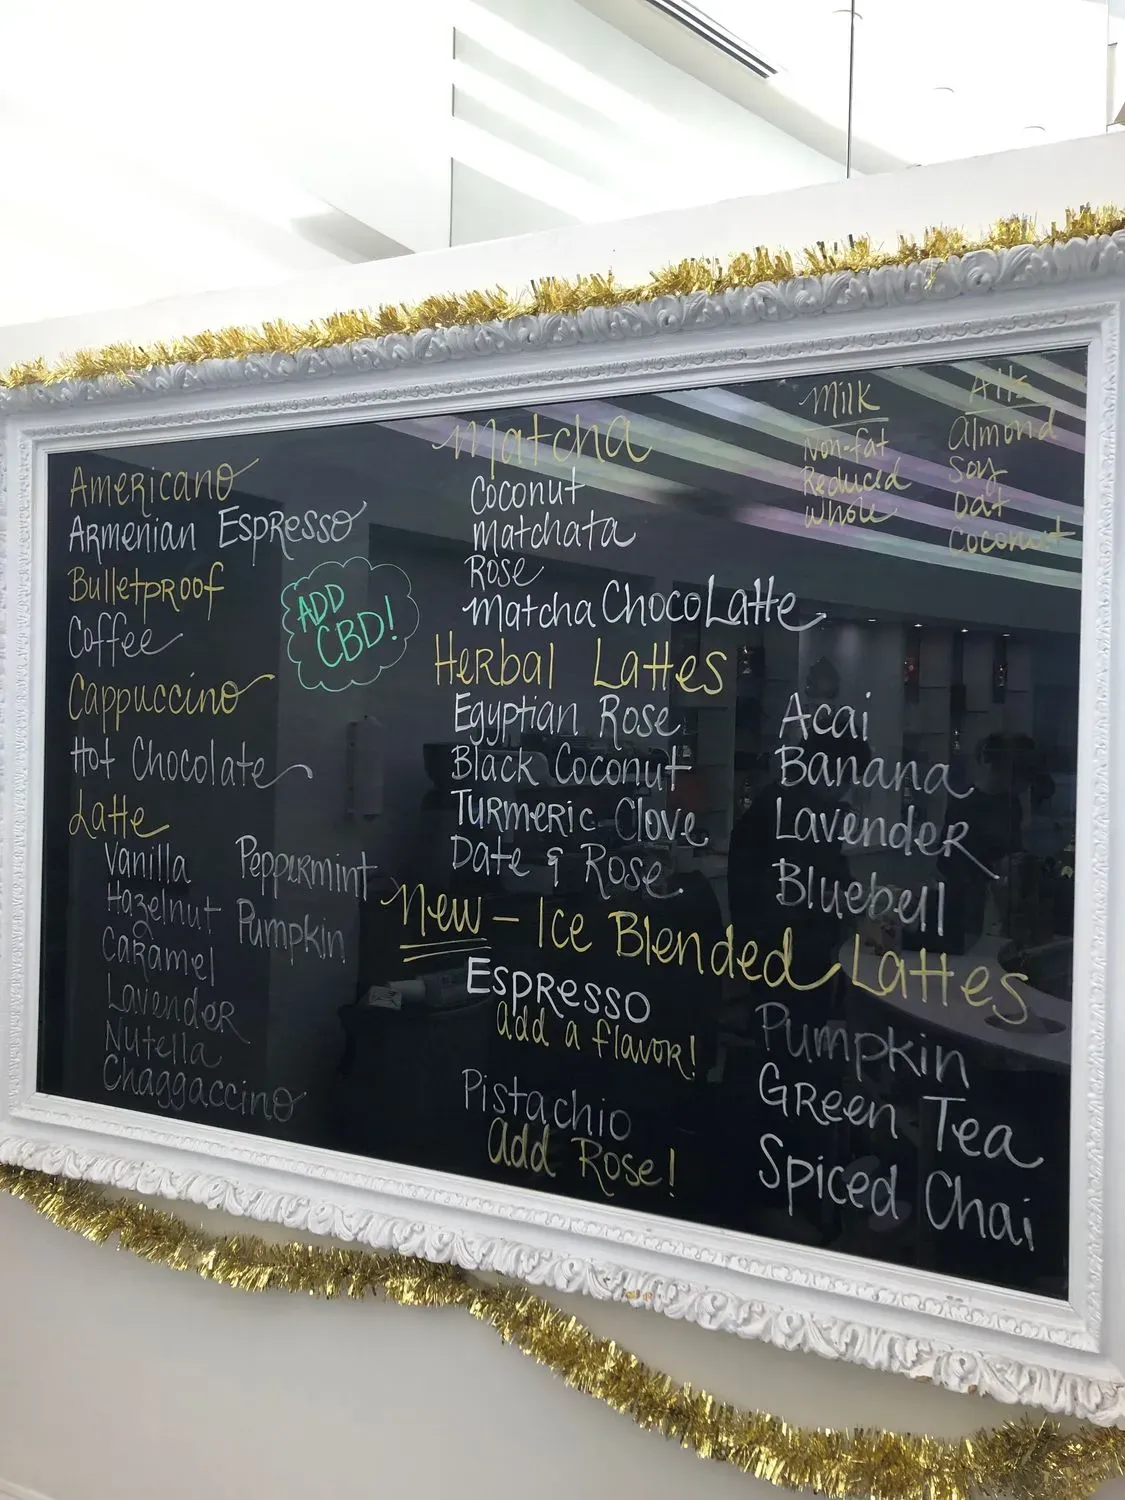 Americano
Armenian Espresso
Bulletproof
Coffee
Cappuccino
Hot Chocolate
Latte
Vanilla
Hazelnut
Caramel
Lavender
Nutella
Chaggaccino
Peppermint
Pumpkin
ADD
CBD!
Matcha
Coconut
Matchata
Rose
Matcha ChocoLatte
Herbal Lattes
Egyptian Rose
Black Coconut
Turmeric Clove
Date & Rose
Acai
Banana
Lavender
Bluebell
New - Ice Blended Lattes
Espresso
add a flavor!
Pistachio
add Rose!
Pumpkin
Green Tea
Spiced Chai
Milk
Non-fat
Reduced
Whole
Alts
Almond
Soy
Oat
Coconut